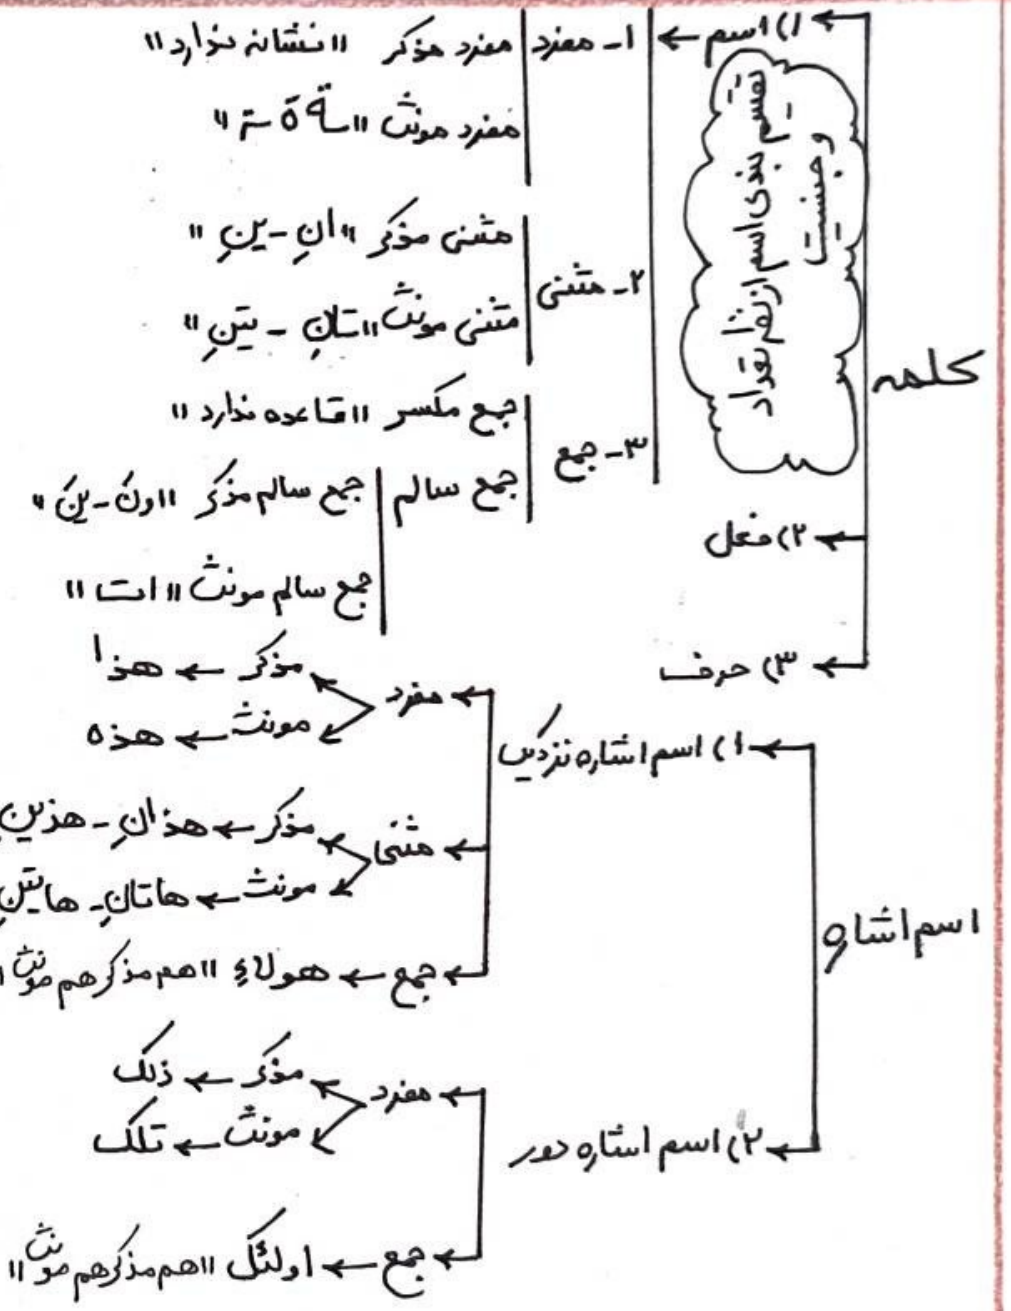 کلمه
۱) اسم
تقسیم بندی اسم از نظر تعداد
و جنسیت
۱- مفرد
مفرد مذکر "نشانه ندارد"
مفرد مونث "ـة ة ـَة"
۲- مثنی
مثنی مذکر "انِ - ینِ"
مثنی مونث "تانِ - تینِ"
۳- جمع
جمع مکسر "قاعده ندارد"
جمع سالم
جمع سالم مذکر "ونَ - ینَ"
جمع سالم مونث "ات"
۲) فعل
۳) حرف
اسم اشاره
۱) اسم اشاره نزدیک
مفرد
مذکر ← هذا
مونث ← هذه
مثنی
مذکر ← هذانِ - هذینِ
مونث ← هاتانِ - هاتینِ
جمع ← هولاءِ "هم مذکر هم مونث"
۲) اسم اشاره دور
مفرد
مذکر ← ذلک
مونث ← تلک
جمع ← اولئک "هم مذکر هم مونث"